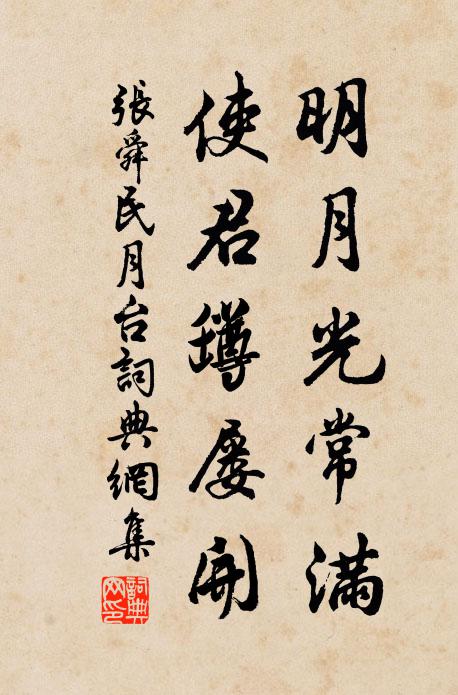 明月光常滿
使君罇屢開
張舜民月台詞典網集
詞典網印